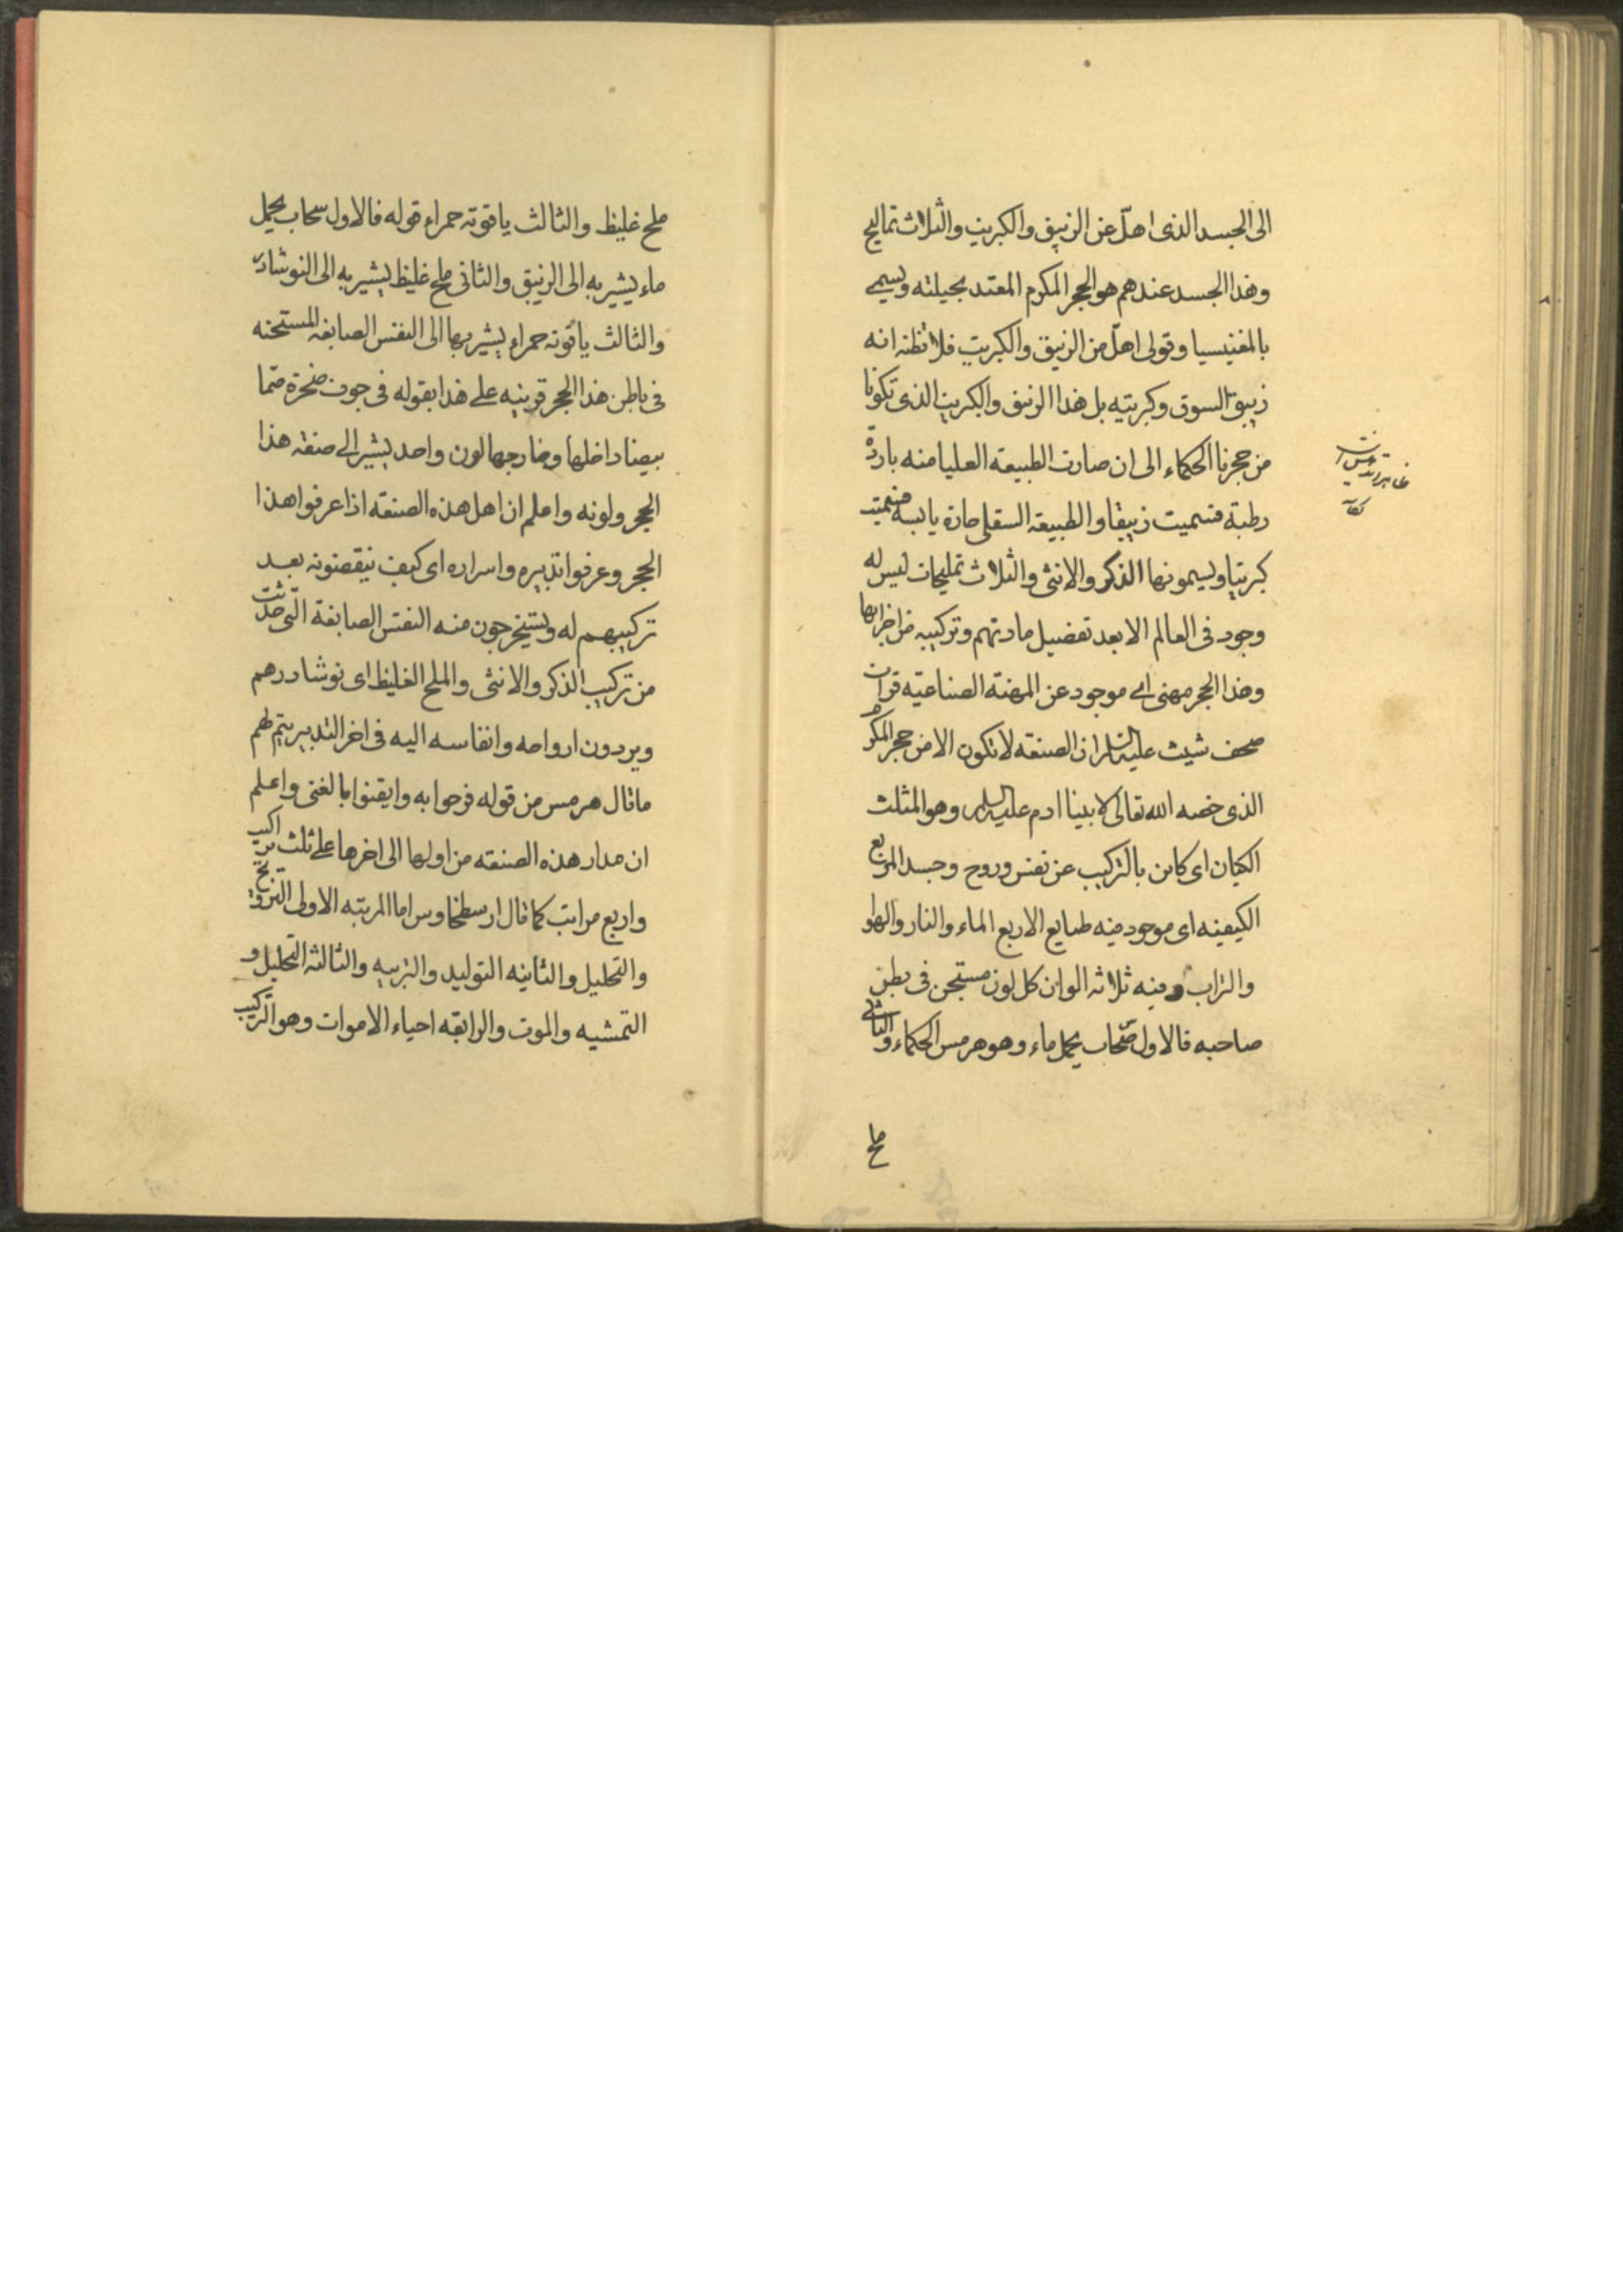 الى الجسد الذى اهلّ عن الزيبق والكبريت والثلاث تماليح
وهذا الجسد عندهم هو الحجر المكرم المعتد بحيلته ويسمى
بالمغنيسيا وقولى اهلّ من الزيبق والكبريت فلا تظنه انه
زيبق السوق وكبريته بل هذا الزيبق والكبريت الذى تكونا
من حجرنا الحكماء الى ان صارت الطبيعه العليا منه باردة
رطبة فسميت زيبقا والطبيعة السفلى حارة يابسه فسميت
كبريتا ويسمونها الذكر والانثى والثلاث تمليحات ليس له
وجود فى العالم الا بعد تفصيل مادتهم وتركيبه من اجزائها
وهذا الحجر مهنى اى موجود عن المهنة الصناعيه قرات
صحف شيث عليه السلام ان الصنعه لا تكون الا من حجر المكرم
الذى خصه الله تعالى لابينا ادم عليه السلام وهو المثلث
الكيان اى كاين بالتركيب عن نفس وروح وجسد المربع
الكيفيه اى موجود فيه طبايع الاربع الماء والنار والهوا
والتراب وفيه ثلاثه الوان كل لون مستجن فى بطن
صاحبه فالاول سحاب يحمل ماء وهو هرمس الحكماء والثانى
ملح
ملح غليظ والثالث ياقوته حمراء قوله فالاول سحاب يحمل
ماء يشير به الى الزيبق والثانى ملح غليظ يشير به الى النوشادر
والثالث ياقوته حمراء يشير بها الى النفس الصابغه المستجنه
فى باطن هذا الحجر قرينه على هذا بقوله فى جوف صخرة صمّا
بيضا داخلها وخارجها لون واحد يشير الى صنعه هذا
الحجر ولونه واعلم ان اهل هذه الصنعه اذا عرفوا هذا
الحجر وعرفوا تدبيره واسراره اى كيف ينقضونه بعد
تركيبهم له ويستخرجون منه النفس الصابغة التى حدثت
من تركيب الذكر والانثى والملح الغليظ اى نوشادرهم
ويردون ارواحه وانفاسه اليه فى اخر التدبير يتم لهم
ما قال هرمس من قوله فرحوا به وايقنوا بالغنى واعلم
ان مدار هذه الصنعه من اولها الى اخرها على ثلث تراكيب
واربع مراتب كما قال ارسطخاوس اما المربته الاولى التزويج
والتحليل والثانيه التوليد والتربيه والثالثه التحليل و
التمشيه والموت والرابعه احياء الاموات وهو التركيب